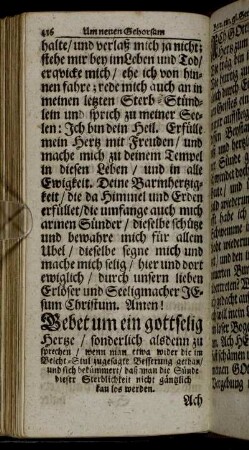 416 Um neuen Gehorsam
halte/ und verlaß mich ja nicht;
stehe mir bey im Leben und Tod/
erqvicke mich/ ehe ich von hin-
nen fahre; rede mich auch an in
meinen letzten Sterb-Stünd-
lein und sprich zu meiner See-
len: Jch bin dein Heil. Erfülle
mein Hertz mit Freuden/ und
mache mich zu deinem Tempel
in diesen Leben/ und in alle
Ewigkeit. Deine Barmhertzig-
keit/ die da Himmel und Erden
erfüllet/ die umfange auch mich
armen Sünder/ dieselbe schütze
und bewahre mich für allem
Ubel/ dieselbe segne mich und
mache mich selig/ hier und dort
ewiglich/ durch unsern lieben
Erlöser und Seeligmacher JE-
sum Christum. Amen!
Gebet um ein gottselig
Hertze/ sonderlich alsdenn zu
sprechen/ wenn man etwa wider die im
Beicht-Stul zugesagte Besserung gethan/
und sich bekümmert/ daß man die Sünde
dieser Sterblichkeit nicht gäntzlich
kan los werden.
Ach